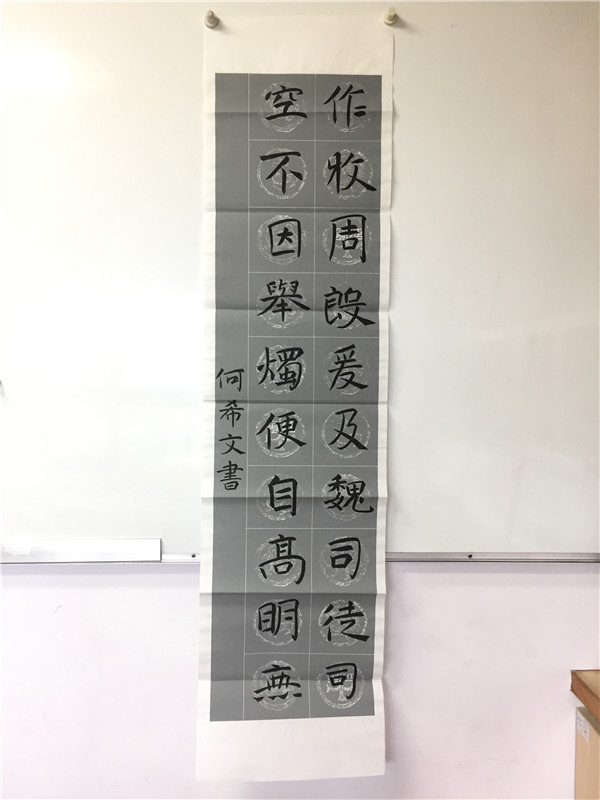 作牧周殷爰及魏司徒司
空不因舉燭便自髙眀無
何希文書